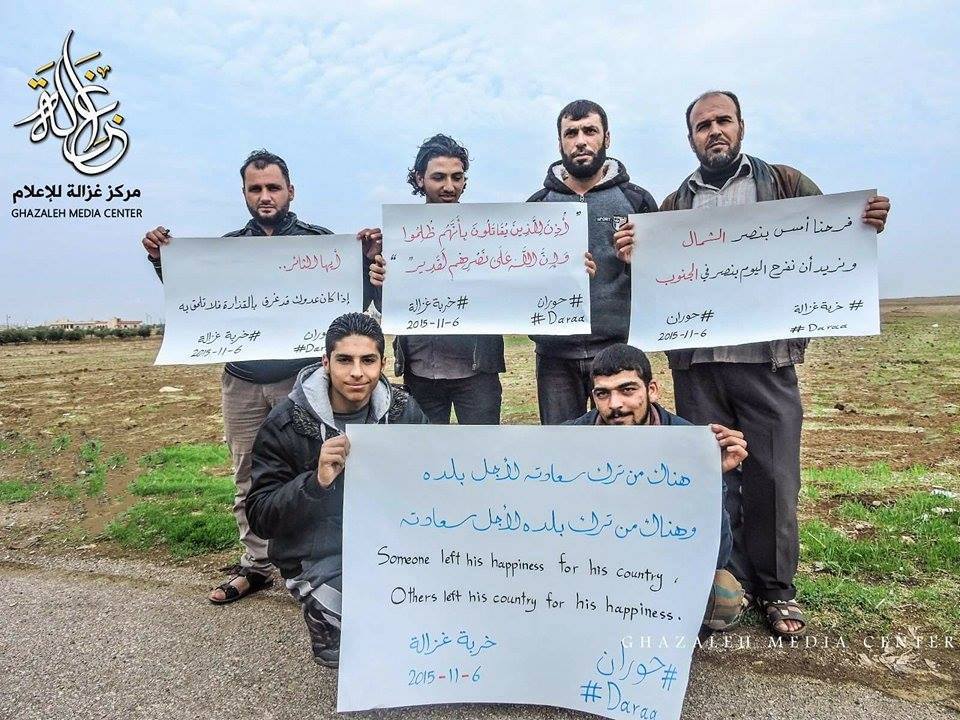 غزالة
مركز غزالة للإعلام
GHAZALEH MEDIA CENTER
فرحنا أمس بنصر الشمال
ونريد أن نفرح اليوم بنصر في الجنوب
#خربة غزالة
#حوران
2015-11-6
#Daraa
"أُذِنَ للَّذِينَ يُقَاتَلُونَ بِأَنَّهُمْ ظُلِمُوا
وَإِنَّ اللَّهَ عَلَى نَصْرِهِمْ لَقَدِيرٌ"
#حوران
#خربة غزالة
#Daraa
2015-11-6
أيها الثائر..
إذا كان عدوك قد غرق بالقذارة فلا تلحق به
#حوران
#خربة غزالة
#Daraa
2015-11-6
هناك من ترك سعادته لأجل بلده
وهناك من ترك بلده لأجل سعادته
Someone left his happiness for his country,
Others left his country for his happiness.
خربة غزالة
#حوران
2015-11-6
#Daraa
GHAZALEH MEDIA CENTER